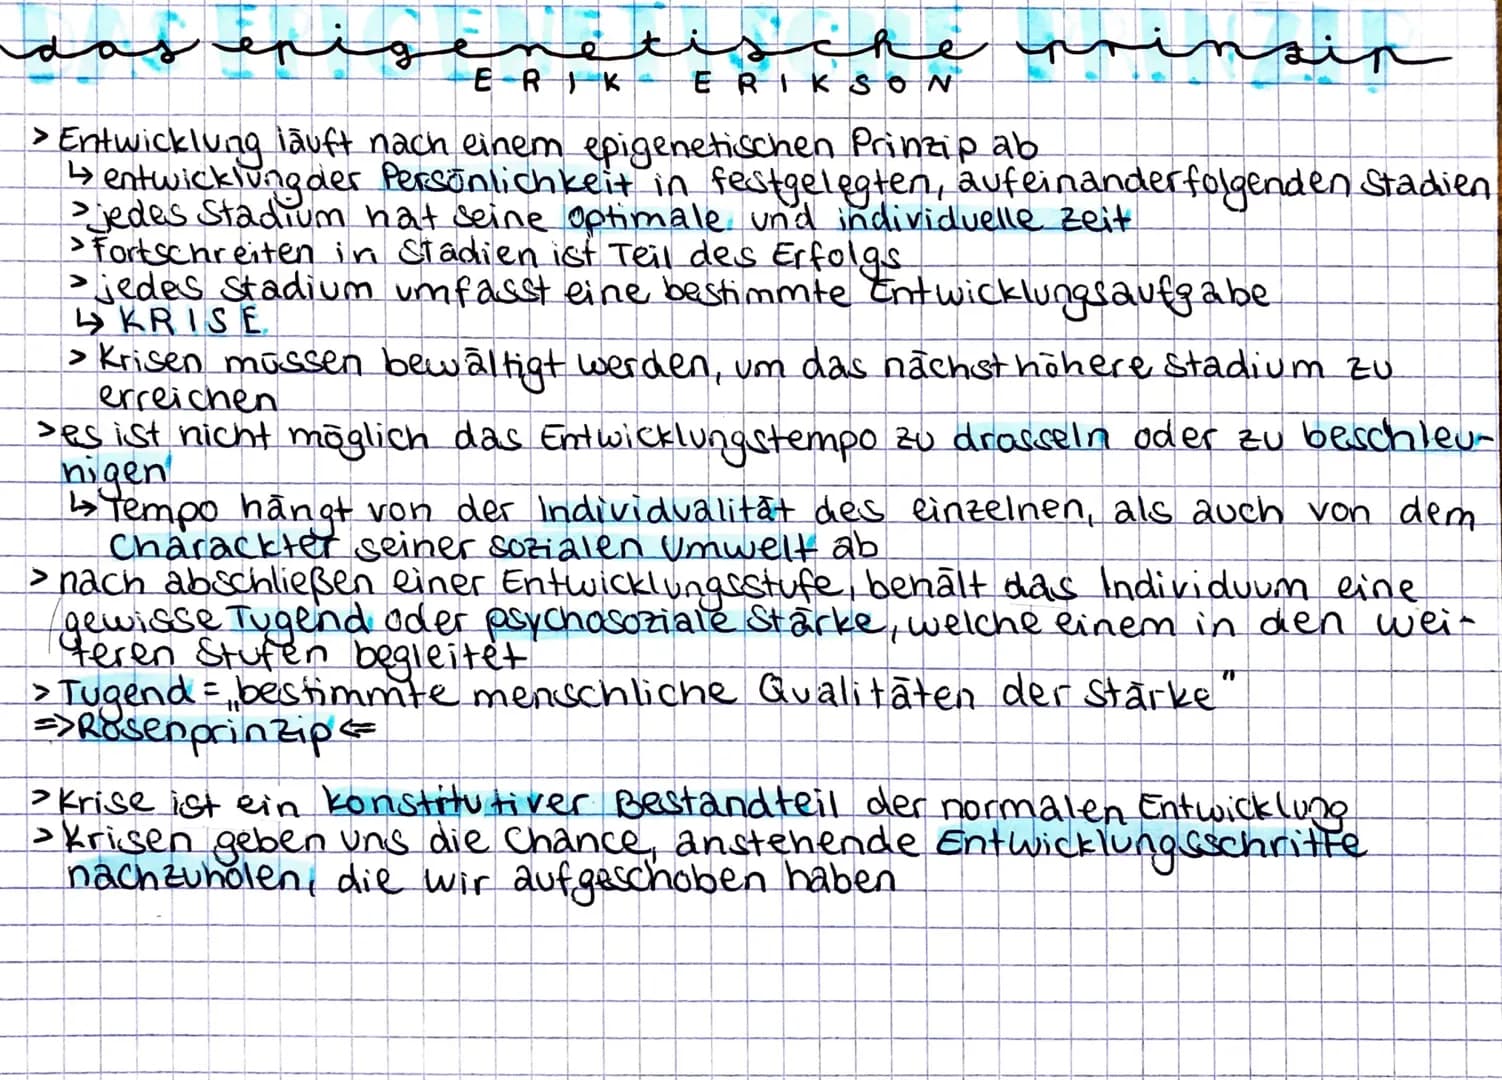 das epigenetische prinzip
ERIK ERIKSON
> Entwicklung läuft nach einem epigenetischen Prinzip ab
↳ entwicklung der Persönlichkeit in festgelegten, aufeinanderfolgenden Stadien
> jedes Stadium hat seine optimale und individuelle zeit
> Fortschreiten in Stadien ist Teil des Erfolgs
> jedes Stadium umfasst eine bestimmte Entwicklungsaufgabe
↳ KRISE
> Krisen müssen bewältigt werden, um das nächst höhere Stadium zu
erreichen
> es ist nicht möglich das Entwicklungstempo zu drosseln oder zu beschleu-
nigen
↳ Tempo hängt von der Individualität des einzelnen, als auch von dem
Charackter seiner sozialen Umwelt ab
> nach abschließen einer Entwicklungsstufe, behält das Individuum eine
gewisse Tugend oder psychosoziale Stärke, welche einem in den wei-
teren Stufen begleitet
> Tugend = „bestimmte menschliche Qualitäten der Stärke"
=> Rosenprinzip <=
> Krise ist ein konstitutiver Bestandteil der normalen Entwicklung
> Krisen geben uns die Chance, anstehende Entwicklungsschritte
nachzuholen, die wir aufgeschoben haben